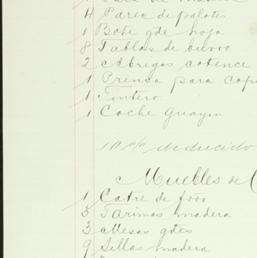 4 Pares de palotes
1 Bote gde hoja
8 Tablas de burro
2 Abrigos
1 Prensa para
1 Tintero
1 Coche Guayin
10 % deducido
Muebles de
1 Catre de foo
3 Tarimas madera
3 Mesas gdes
9 Sillas madera